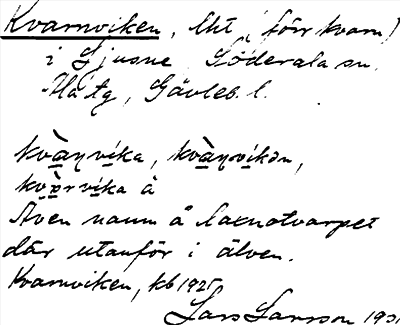 Kvarnviken, lht (förr kvarn)
i Ljusne Söderala sn.
Ala tg, Gävleb. l.
kvàɳvika, kvàɳvikən,
vika å
Även namn å laxnotvarpet
där utanför i älven.
Kvarnviken, kb 1925
Lars Larsson 1931